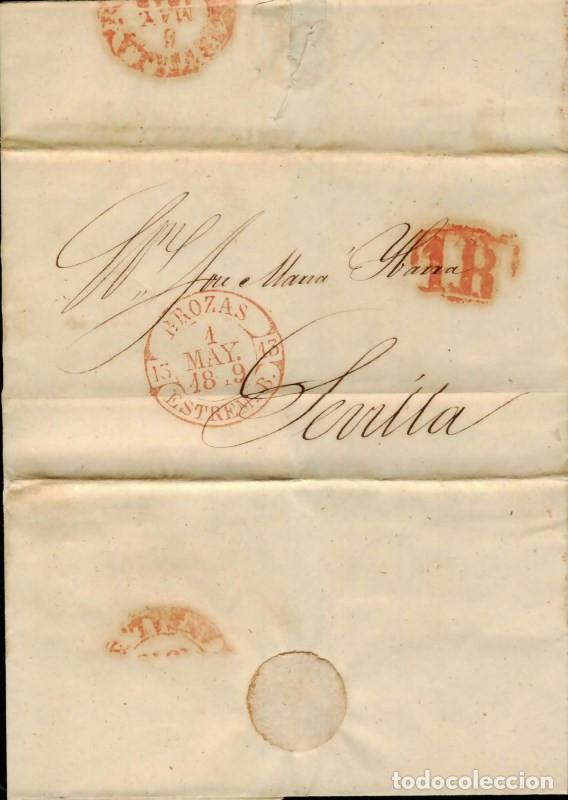 6
MAY.
José Maria Ybarra
1R
BROZAS
1
MAY.
1849
13 13
ESTREM. B.
Sevilla
todocoleccion